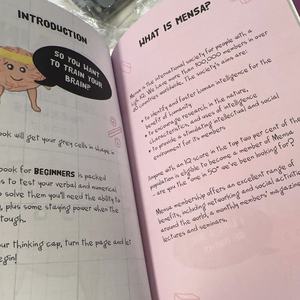 INTRODUCTION
SO YOU WANT
TO TRAIN YOUR
BRAIN?
ook will get your grey cells in shape in
ook for BEGINNERS is packed
s to test your verbal and numerical
o solve them you'll need the ability to
, plus some staying power when the
tough.
ur thinking cap, turn the page and let
egin!
WHAT IS MENSA?
Mensa is the international society for people with a
high IQ. We have more than 100,000 members in over
40 countries worldwide. The society's aims are:
• to identify and foster human intelligence for the
benefit of humanity
• to encourage research in the nature,
characteristics, and uses of intelligence
• to provide a stimulating intellectual and social
environment for its members
Anyone with an IQ score in the top two per cent of the
population is eligible to become a member of Mensa
– are you the "one in 50" we've been looking for?
Mensa membership offers an excellent range of
benefits, including networking and social activities
around the world, a monthly members' magazine
lectures and seminars.